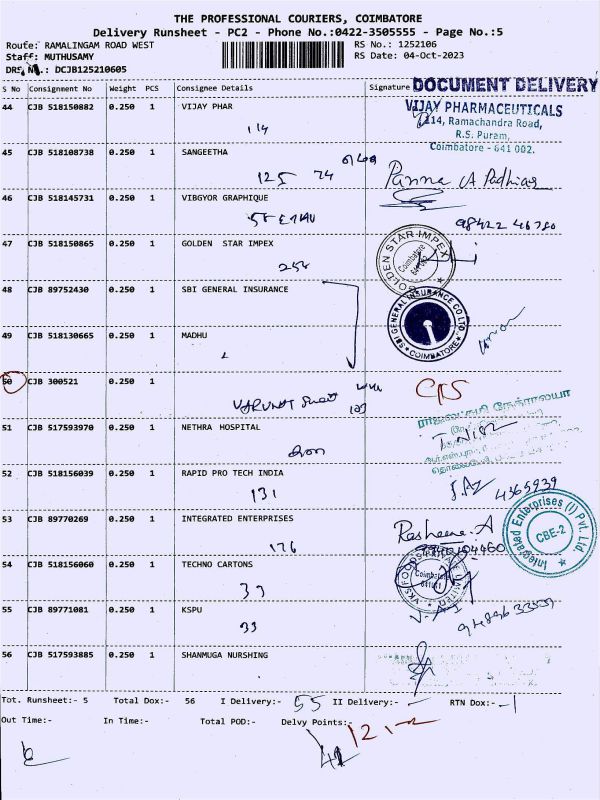 THE PROFESSIONAL COURIERS, COIMBATORE
Delivery Runsheet - PC2 - Phone No.:0422-3505555 - Page No.:5
Route: RAMALINGAM ROAD WEST
RS No.: 1252106
Staff: MUTHUSAMY
RS Date: 04-Oct-2023
DRS No.: DCJB125210605
S No Consignment No Weight PCS Consignee Details Signature
DOCUMENT DELIVERY
44 CJB 518150882 0.250 1 VIJAY PHAR
114
VIJAY PHARMACEUTICALS
114, Ramachandra Road,
R.S. Puram,
Coimbatore - 641 002.
45 CJB 518108738 0.250 1 SANGEETHA
125 74
46 CJB 518145731 0.250 1 VIBGYOR GRAPHIQUE
98422 46780
47 CJB 518150865 0.250 1 GOLDEN STAR IMPEX
GOLDEN STAR IMPEX
Coimbatore
48 CJB 89752430 0.250 1 SBI GENERAL INSURANCE
SBI GENERAL INSURANCE CO LTD.
COIMBATORE
49 CJB 518130665 0.250 1 MADHU
50 CJB 300521 0.250 1
51 CJB 517593970 0.250 1 NETHRA HOSPITAL
52 CJB 518156039 0.250 1 RAPID PRO TECH INDIA
131
4365939
53 CJB 89770269 0.250 1 INTEGRATED ENTERPRISES
176
Integrated Enterprises (I) Pvt. Ltd
CBE-2
54 CJB 518156060 0.250 1 TECHNO CARTONS
33
Coimbatore
55 CJB 89771081 0.250 1 KSPU
33
56 CJB 517593885 0.250 1 SHANMUGA NURSHING
Tot. Runsheet:- 5 Total Dox:- 56 I Delivery:- 55 II Delivery:- - RTN Dox:- 1
Out Time:- In Time:- Total POD:- Delvy Points:-